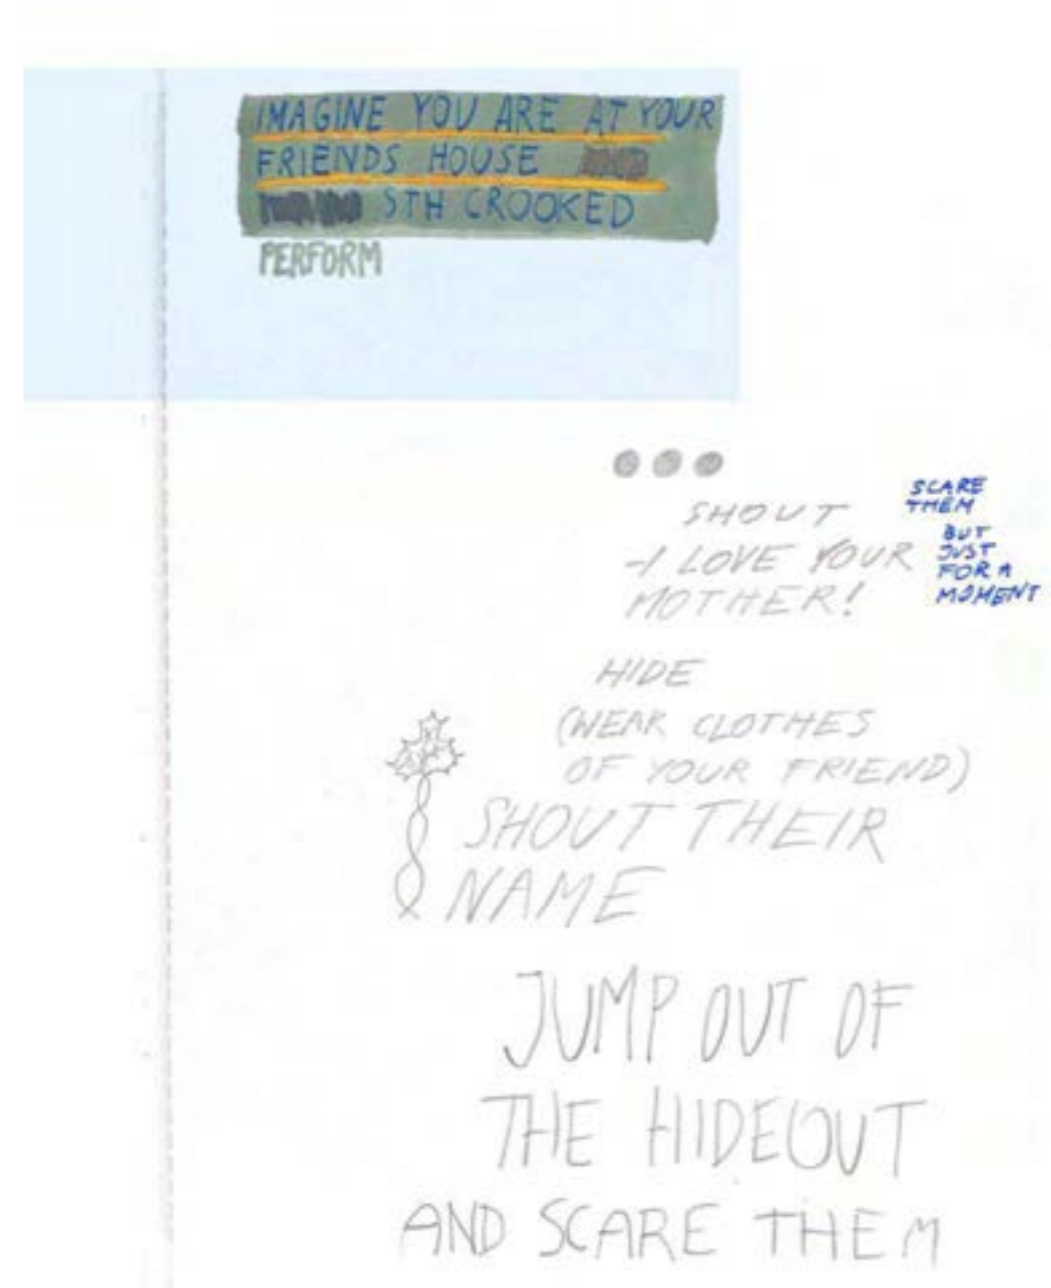 IMAGINE YOU ARE AT YOUR
FRIENDS HOUSE
STH CROOKED
PERFORM
SHOUT
-I LOVE YOUR
MOTHER!
SCARE
THEM
BUT
JUST
FOR A
MOMENT
HIDE
(WEAR CLOTHES
OF YOUR FRIEND)
SHOUT THEIR
NAME
JUMP OUT OF
THE HIDEOUT
AND SCARE THEM